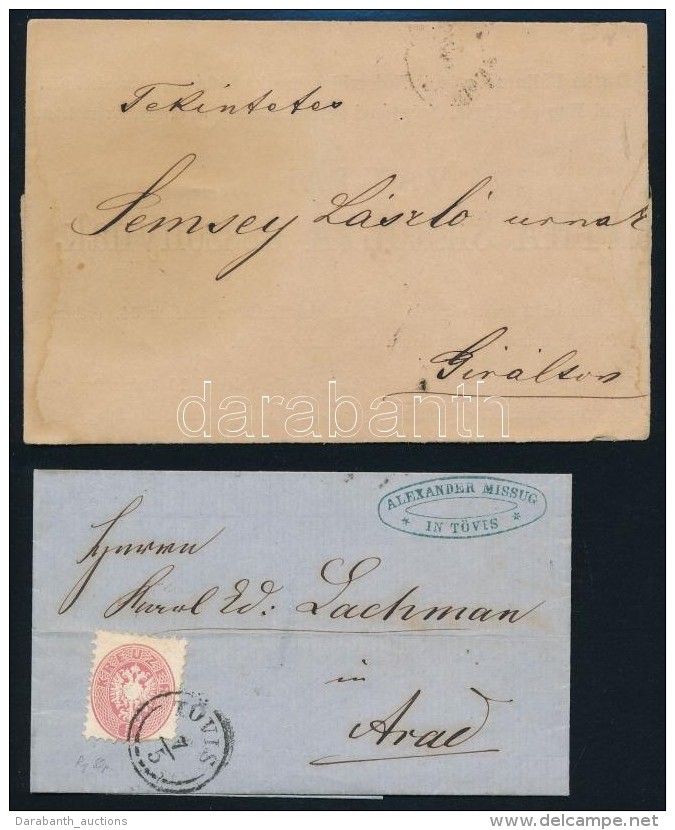 Tekintetes
Semsey László urnak
Girálton
darabanth
ALEXANDER MISSUG
* IN TÖVIS *
Herrn
Karol Ed: Lachman
in
Arad
KREUZER
TÖVIS
7/5
Darabanth_auctions